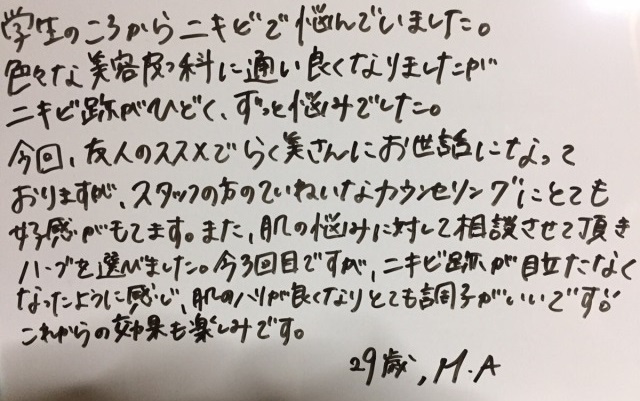 学生のころからニキビで悩んでいました。
色々な美容皮フ科に通い良くなりましたが
ニキビ跡がひどく、ずっと悩みでした。
今回、友人のススメでらく美さんにお世話になって
おりますが、スタッフの方のていねいなカウンセリングにとても
好感がもてます。また、肌の悩みに対して相談させて頂き
ハーブを選びました。今3回目ですが、ニキビ跡が目立たなく
なったように感じ、肌のハリが良くなりとても調子がいいです。
これからの効果も楽しみです。
29歳, M.A